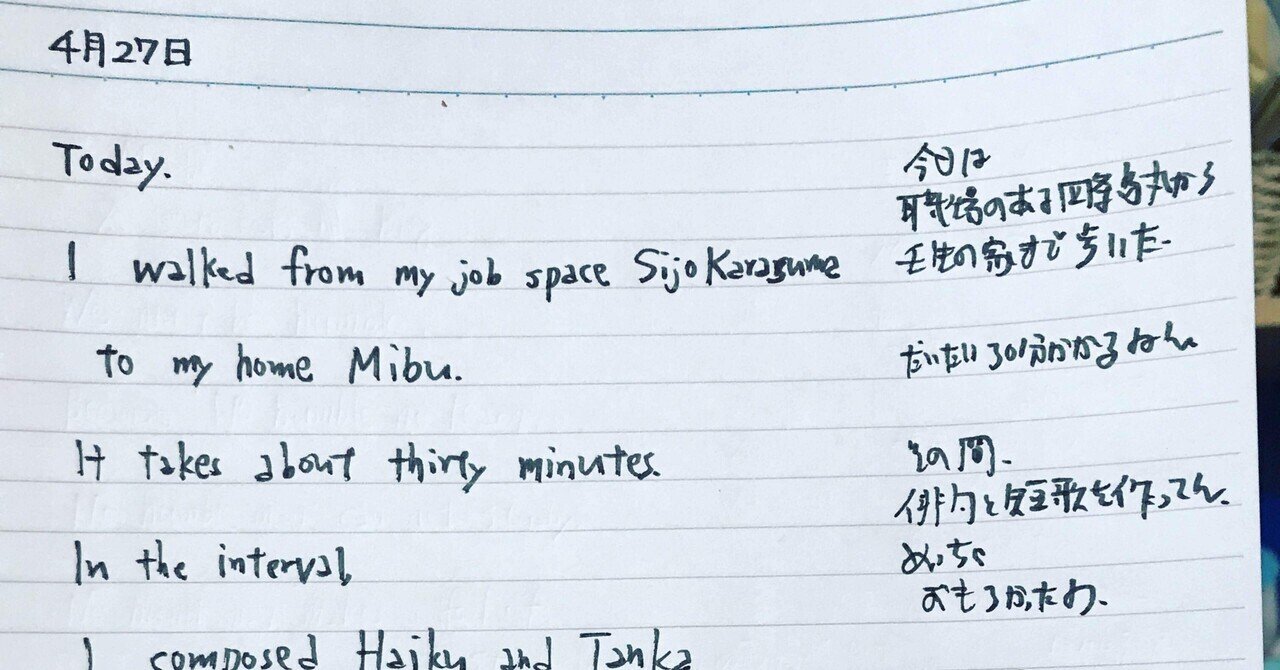 4月27日
Today.
I walked from my job space SijoKarasuma
to my home Mibu.
It takes about thirty minutes.
In the interval,
I composed Haiku and Tanka
今日は
職場のある四条烏丸から
壬生の家まで歩いた.
だいたい30分かかるねん.
その間.
俳句と短歌を作ってん.
めっちゃ
おもろかったわ.